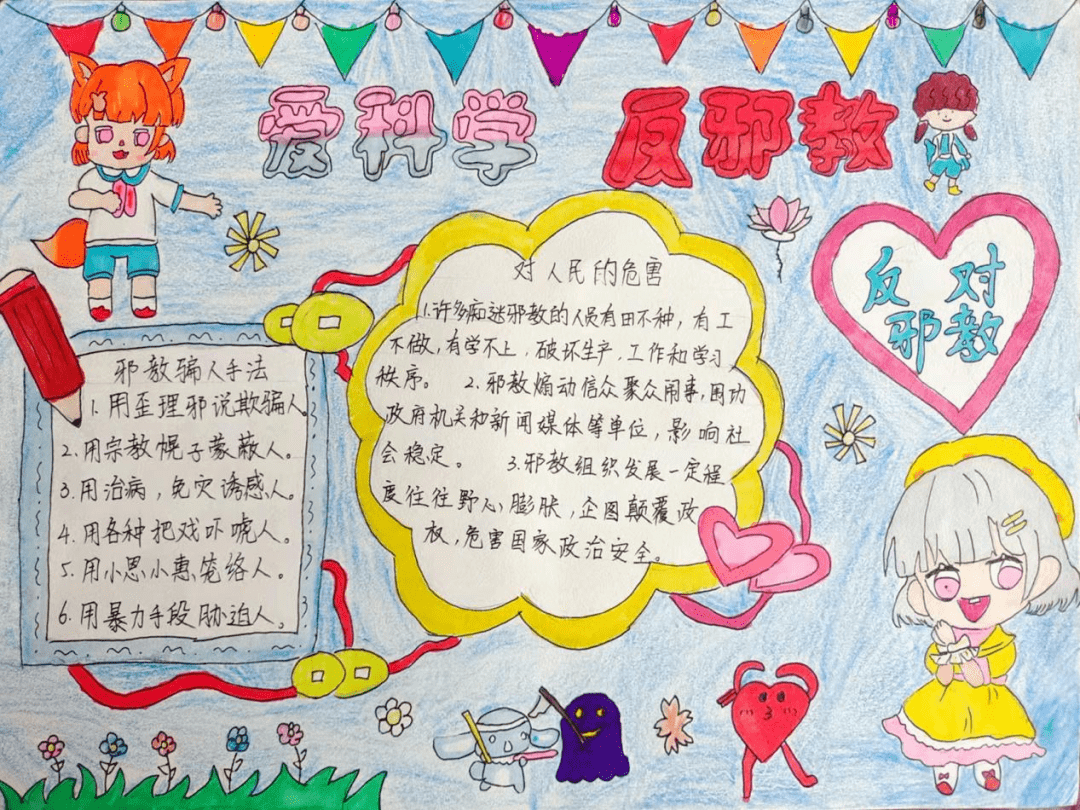 爱科学 反邪教
反对
邪教
对人民的危害
1.许多痴迷邪教的人员有田不种，有工
不做，有学不上，破坏生产，工作和学习
秩序。 2.邪教煽动信众聚众闹事，围功
政府机关和新闻媒体等单位，影响社
会稳定。 3.邪教组织发展一定程
度往往野心膨胀，企图颠覆政
权，危害国家政治安全。
邪教骗人手法
1.用歪理邪说欺骗人
2.用宗教幌子蒙蔽人。
3.用治病，免灾诱惑人。
4.用各种把戏吓唬人。
5.用小恩小惠笼络人。
6.用暴力手段胁迫人。